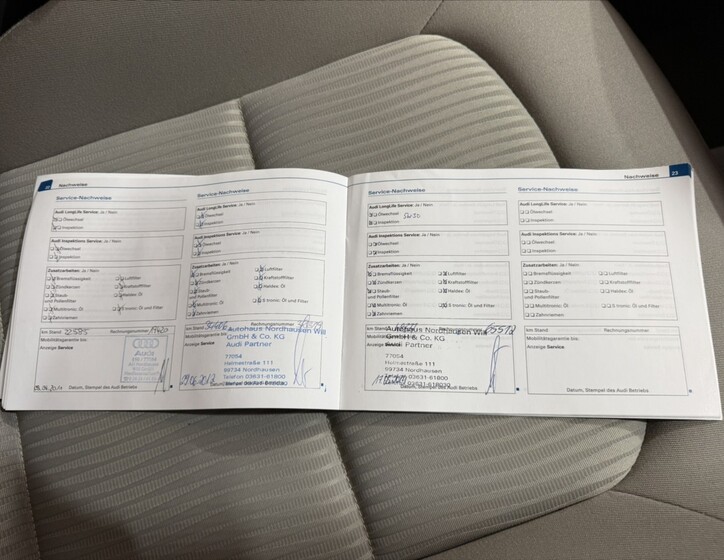 Nachweise
Service-Nachweise
Audi LongLife Service Ja / Nein:
Ölwechsel
Inspektion
Audi Inspektions Service Ja / Nein:
Ölwechsel
Inspektion
Zusatzarbeiten Ja / Nein:
Bremsflüssigkeit
Luftfilter
Zündkerzen
Kraftstofffilter
Staub
und Pollenfilter
Haldex Öl
Multitronic Öl
S tronic: Öl und Filter
Zahnriemen
km Stand
22585
Rechnungsnummer
Mobilitätsgarantie bis:
Anzeige Service
Audi
Datum, Stempel des Audi Betriebs
Service-Nachweise
Audi LongLife Service Ja / Nein:
Ölwechsel
Inspektion
Audi Inspektions Service Ja / Nein:
Ölwechsel
Inspektion
Zusatzarbeiten Ja / Nein:
Bremsflüssigkeit
Luftfilter
Zündkerzen
Kraftstofffilter
Staub
und Pollenfilter
Haldex Öl
Multitronic Öl
S tronic: Öl und Filter
Zahnriemen
km Stand
Rechnungsnummer
Autohaus Nordhausen Will
GmbH & Co. KG
Audi Partner
77054
Helmestraße 111
99734 Nordhausen
Telefon 03631-61800
Nachweise
23
Service-Nachweise
Audi LongLife Service Ja / Nein:
Ölwechsel
5W30
Inspektion
Audi Inspektions Service Ja / Nein:
Ölwechsel
Inspektion
Zusatzarbeiten Ja / Nein:
Bremsflüssigkeit
Luftfilter
Zündkerzen
Kraftstofffilter
Staub
und Pollenfilter
Haldex Öl
Multitronic Öl
S tronic: Öl und Filter
Zahnriemen
km Stand
Autohaus Nordhausen Will
GmbH & Co. KG
Audi Partner
77054
Helmestraße 111
99734 Nordhausen
Telefon 03631-61800
Datum, Stempel des Audi Betriebs
Service-Nachweise
Audi LongLife Service Ja / Nein:
Ölwechsel
Inspektion
Audi Inspektions Service Ja / Nein:
Ölwechsel
Inspektion
Zusatzarbeiten Ja / Nein:
Bremsflüssigkeit
Luftfilter
Zündkerzen
Kraftstofffilter
Staub
und Pollenfilter
Haldex Öl
Multitronic Öl
S tronic: Öl und Filter
Zahnriemen
km Stand
Rechnungsnummer
Mobilitätsgarantie bis:
Anzeige Service
Datum, Stempel des Audi Betriebs